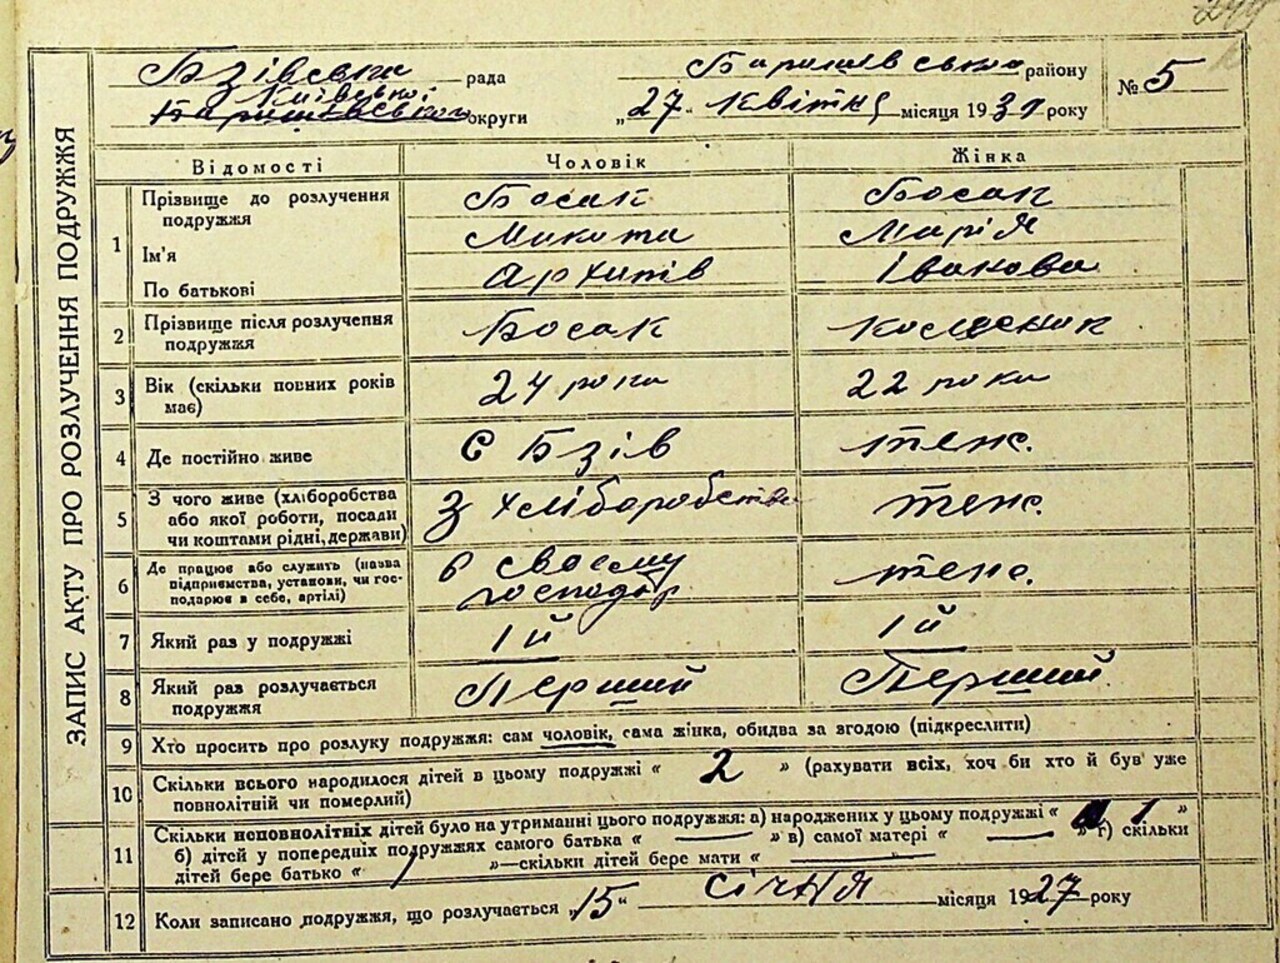 Бзівська рада Баришівського району № 5
Київської
Баришівської округи „27" квітня місяця 1931 року
ЗАПИС АКТУ ПРО РОЗЛУЧЕННЯ ПОДРУЖЖЯ
Відомості Чоловік Жінка
1 Прізвище до розлучення подружжя Босак Босак
Ім'я Микита Марія
По батькові Архипів Іванова
2 Прізвище після розлучення подружжя Босак
3 Вік (скільки повних років має) 24 роки 22 роки
4 Де постійно живе с Бзів теж.
5 З чого живе (хліборобства або якої роботи, посади чи коштами рідні, держави) З хліборобства теж.
6 Де працює або служить (назва підприємства, установи, чи господарює в себе, артілі) в своєму господар теж.
7 Який раз у подружжі 1й 1й
8 Який раз розлучається подружжя Перший Перший
9 Хто просить про розлуку подружжя: сам чоловік, сама жінка, обидва за згодою (підкреслити)
10 Скільки всього народилося дітей в цьому подружжі « 2 » (рахувати всіх, хоч би хто й був уже
повнолітній чи померлий)
11 Скільки неповнолітніх дітей було на утриманні цього подружжя: а) народжених у цьому подружжі « 1 »
б) дітей у попередніх подружжях самого батька « — » в) самої матері « — » г) скільки
дітей бере батько « 1 »—скільки дітей бере мати « — »
12 Коли записано подружжя, що розлучається „15" січня місяця 1927 року